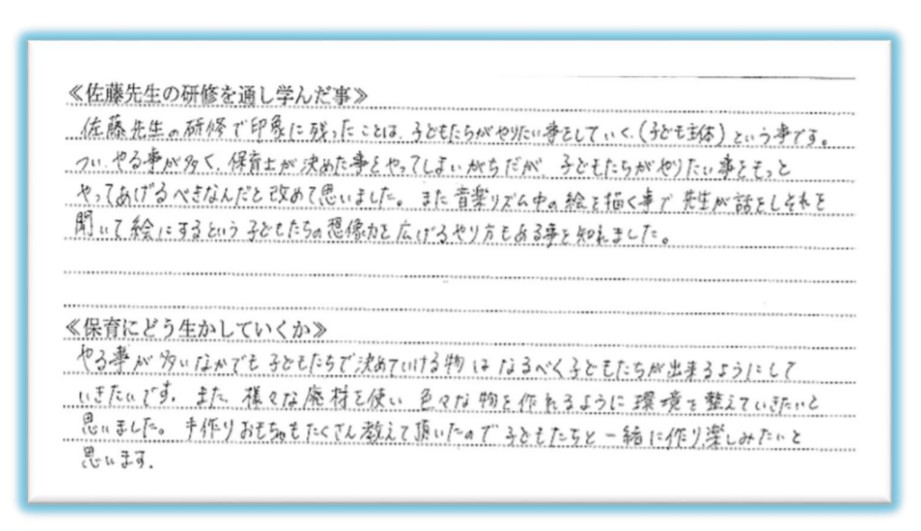 ≪佐藤先生の研修を通し学んだ事≫
佐藤先生の研修で印象に残ったことは、子どもたちがやりたい事をしていく、(子ども主体)という事です。
つい、やる事が多く、保育士が決めた事をやってしまいがちだが 子どもたちがやりたい事をもっと
やってあげるべきなんだと改めて思いました。また音楽リズム中の絵を描く事で 先生が話をしそれを
聞いて絵にするという 子どもたちの想像力を広げるやり方もある事を知れました。
≪保育にどう生かしていくか≫
やる事が多いなかでも 子どもたちで決めていける物は なるべく子どもたちが出来るようにして
いきたいです。また、様々な廃材を使い 色々な物を作れるように環境を整えていきたいと
思いました。手作りおもちゃもたくさん教えて頂いたので 子どもたちと一緒に作り、楽しみたいと
思います。